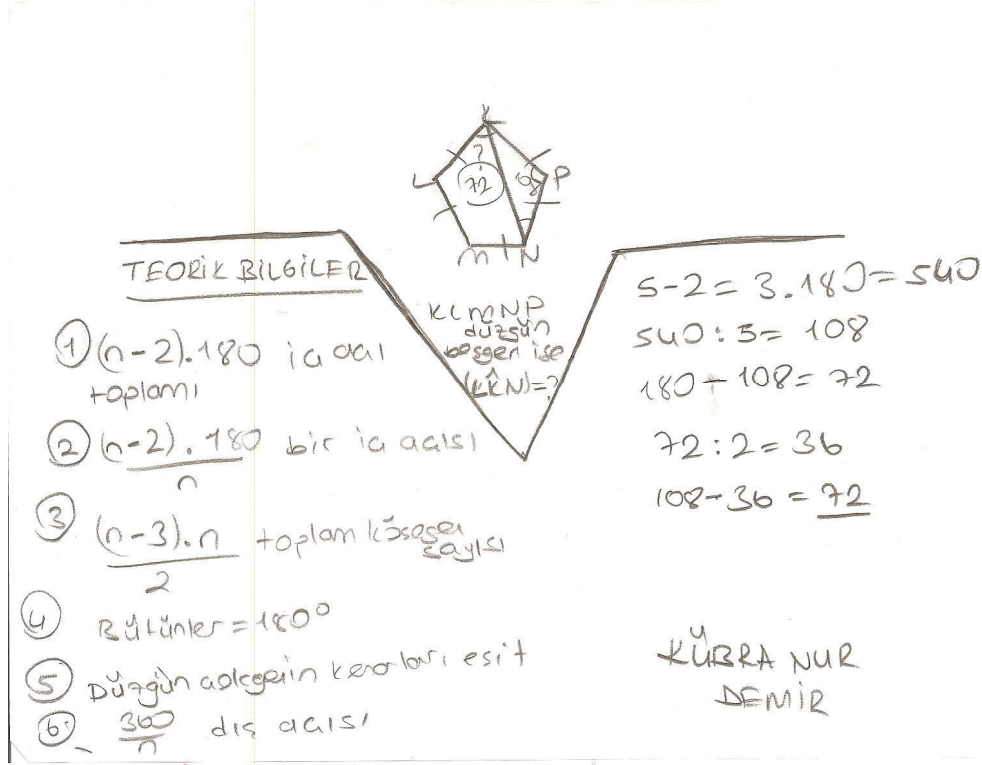 K
?
72
108
L
P
M
N
TEORİK BİLGİLER
① (n-2).180 iç açı
toplamı
② (n-2).180 bir iç açısı
n
③ (n-3).n toplam köşegen
sayısı
2
④ Bütünler = 180°
⑤ Düzgün çokgenin kenarları eşit
⑥ 360 dış açısı
n
KLMNP
düzgün
beşgen ise
(LK̂N)=?
5-2= 3.180=540
540:5= 108
180-108=72
72:2=36
108-36 = 72
KÜBRA NUR
DEMİR